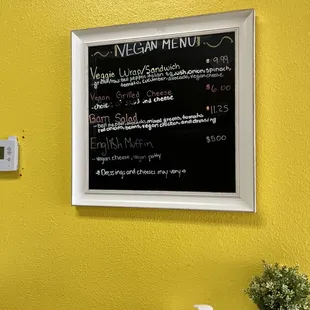 VEGAN MENU
Veggie Wrap/Sandwich $9.99
bell pepper, Italian squash, onion, spinach,
tomato, cucumber, avocado, vegan cheese
Vegan Grilled Cheese $6.00
-choice of bread and cheese
Barn Salad $11.25
-bell pepper, avocado, mixed greens, tomato
beans, vegan chicken, and dressing
English Muffin $5.00
-vegan cheese, vegan patty
*Dressings and cheeses may vary*